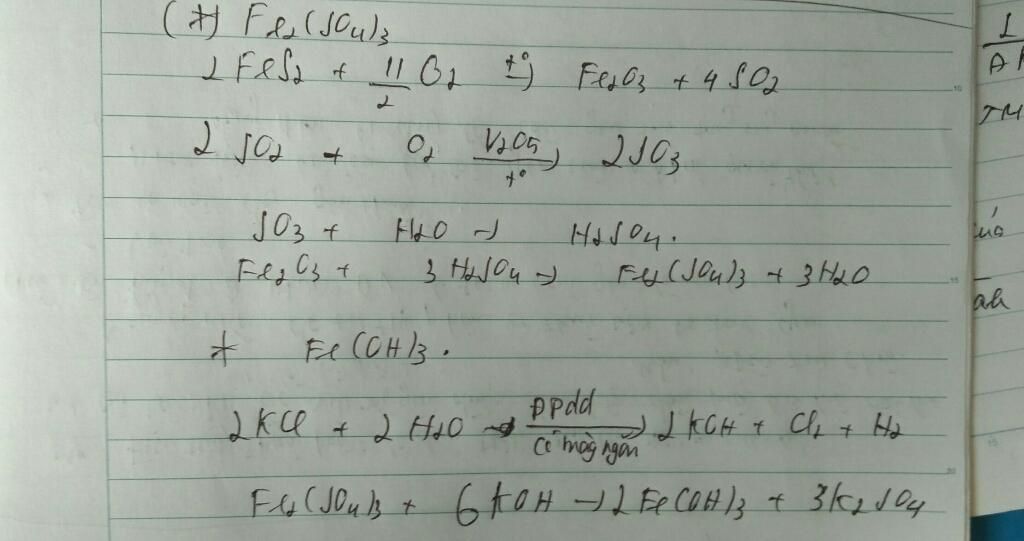 (*) Fe₂(SO₄)₃
2 FeS₂ + 11/2 O₂ t°→ Fe₂O₃ + 4 SO₂
2 SO₂ + O₂ V₂O₅ t° → 2SO₃
SO₃ + H₂O → H₂SO₄.
Fe₂O₃ + 3 H₂SO₄ → Fe₂(SO₄)₃ + 3H₂O
* Fe(OH)₃.
2KCl + 2 H₂O ĐPdd có màg ngăn → 2 KOH + Cl₂ + H₂
Fe₂(SO₄)₃ + 6 KOH → 2 Fe(OH)₃ + 3K₂SO₄